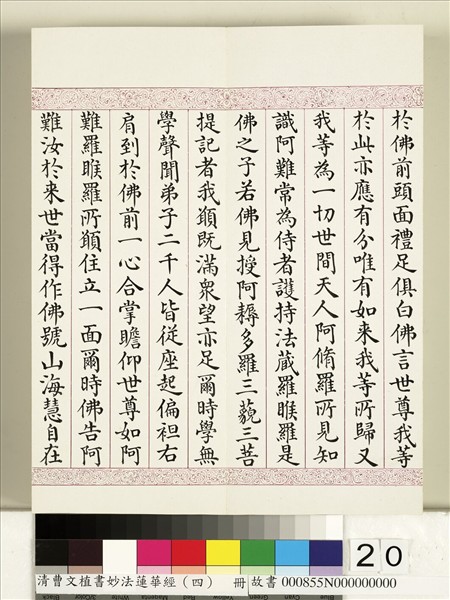 於佛前頭面禮足俱白佛言世尊我等
於此亦應有分唯有如来我等所歸又
我等為一切世間天人阿脩羅所見知
識阿難常為侍者護持法蔵羅睺羅是
佛之子若佛見授阿耨多羅三藐三菩
提記者我願既滿衆望亦足爾時學無
學聲聞弟子二千人皆從座起偏袒右
肩到於佛前一心合掌瞻仰世尊如阿
難羅睺羅所願住立一面爾時佛告阿
難汝於来世當得作佛號山海慧自在
20
清曹文植書妙法蓮華經（四） 冊 故書 000855N000000000